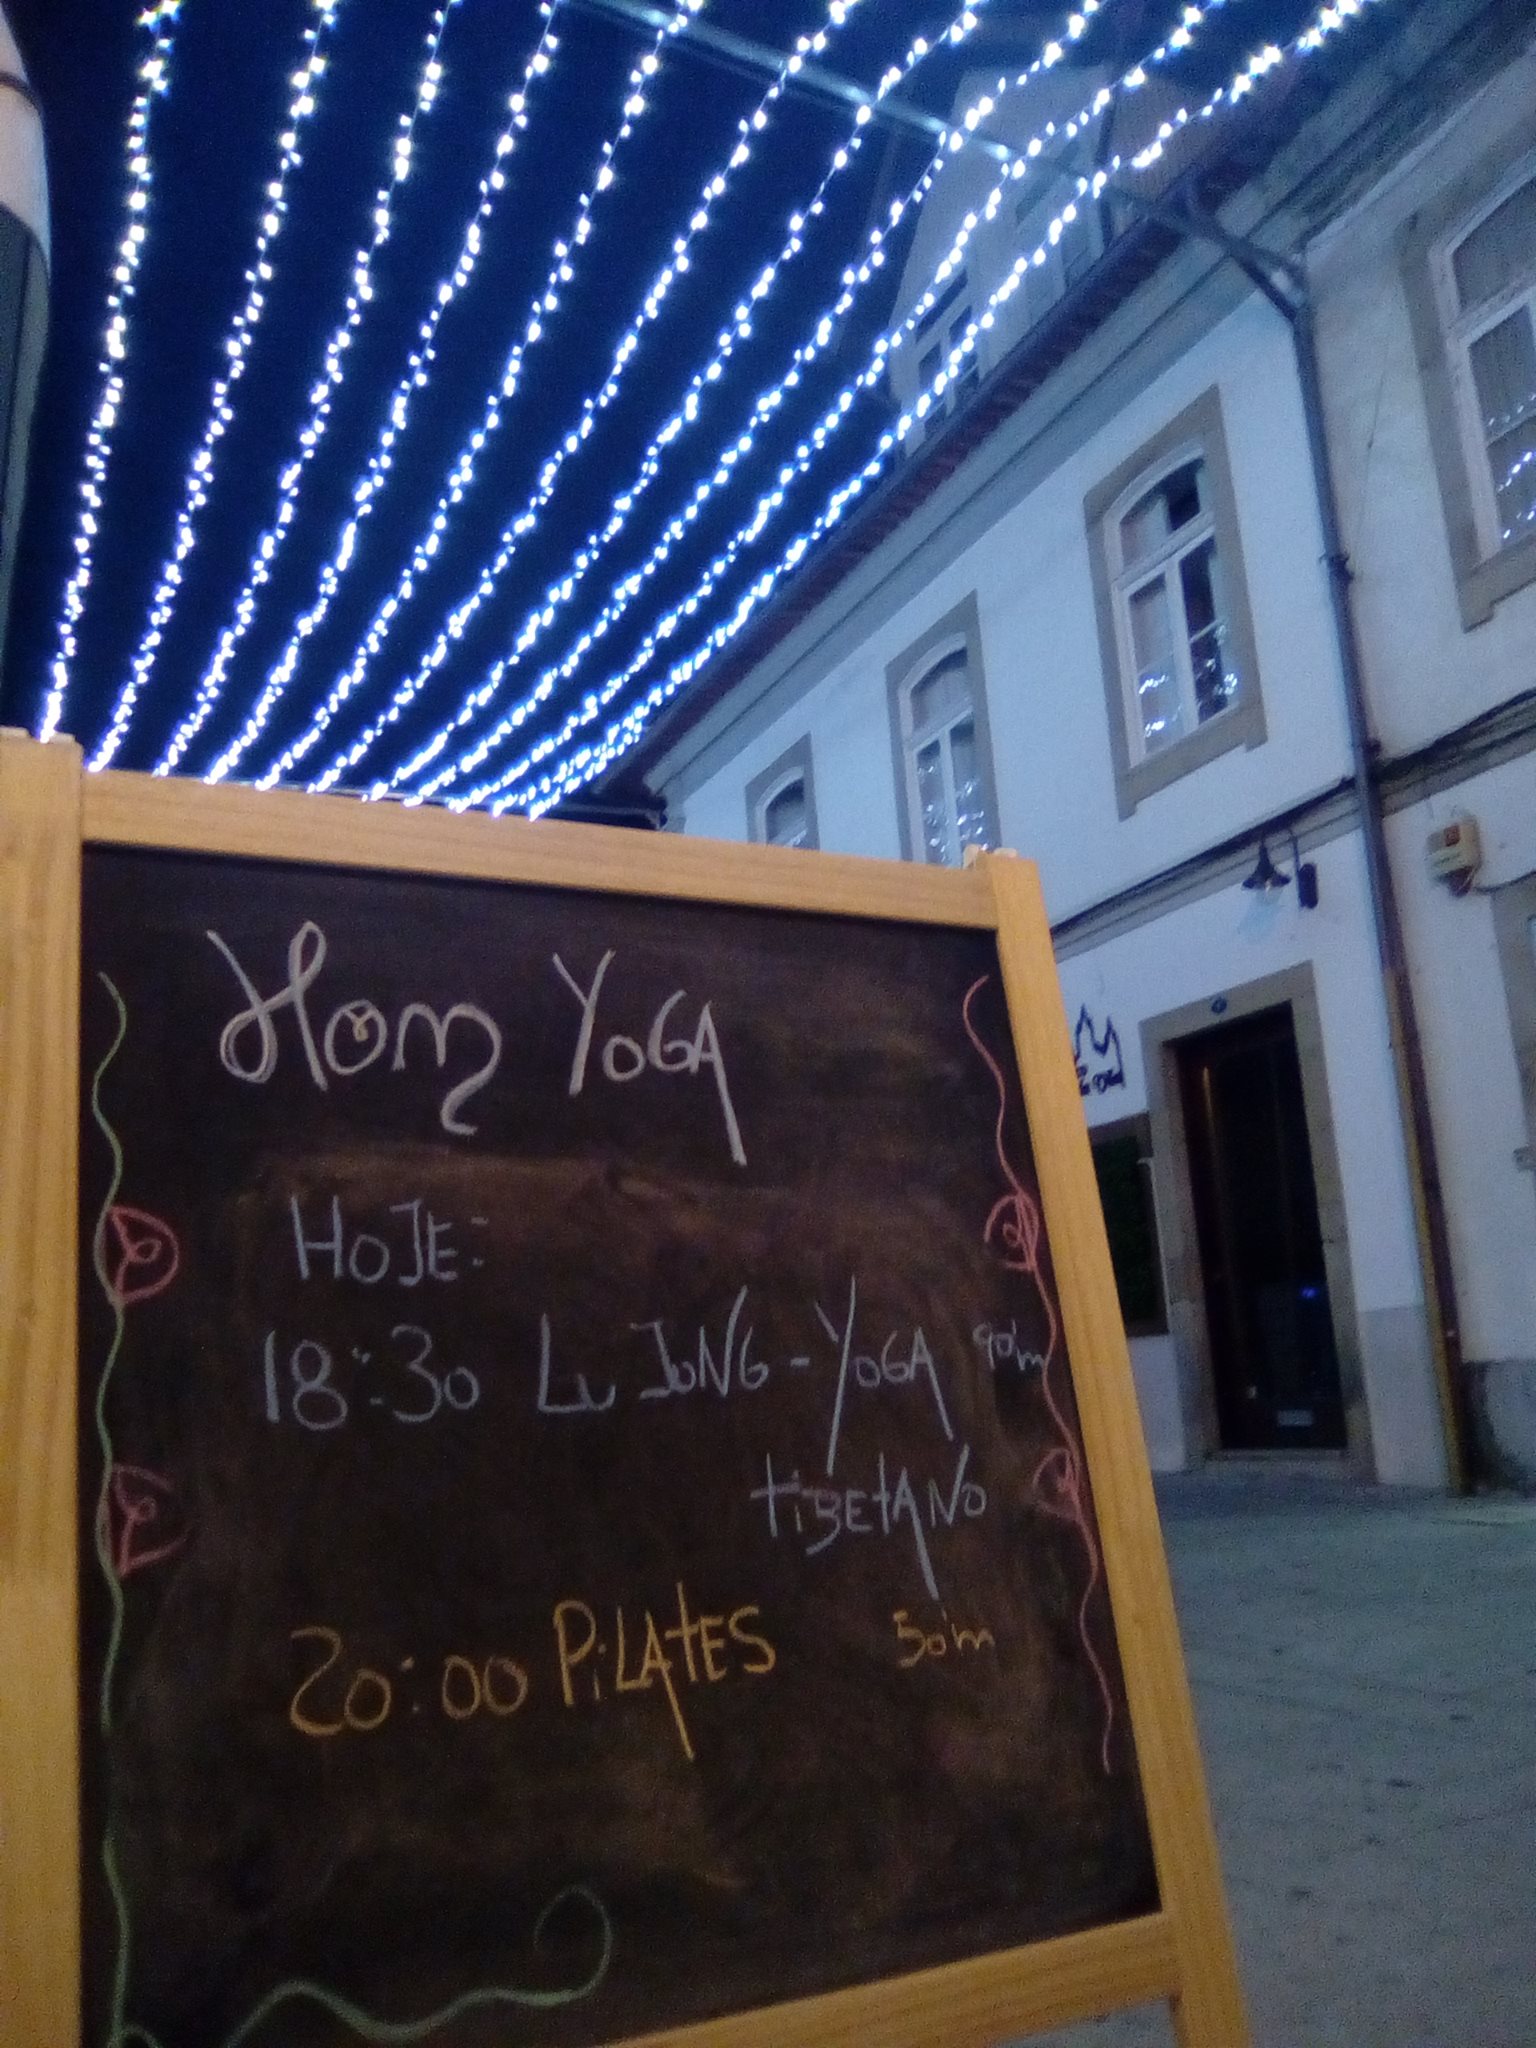 Hom YOGA
HOJE:
18:30 LU JONG - YOGA 90'm
tiBEtANO
20:00 PiLAtES 50'm